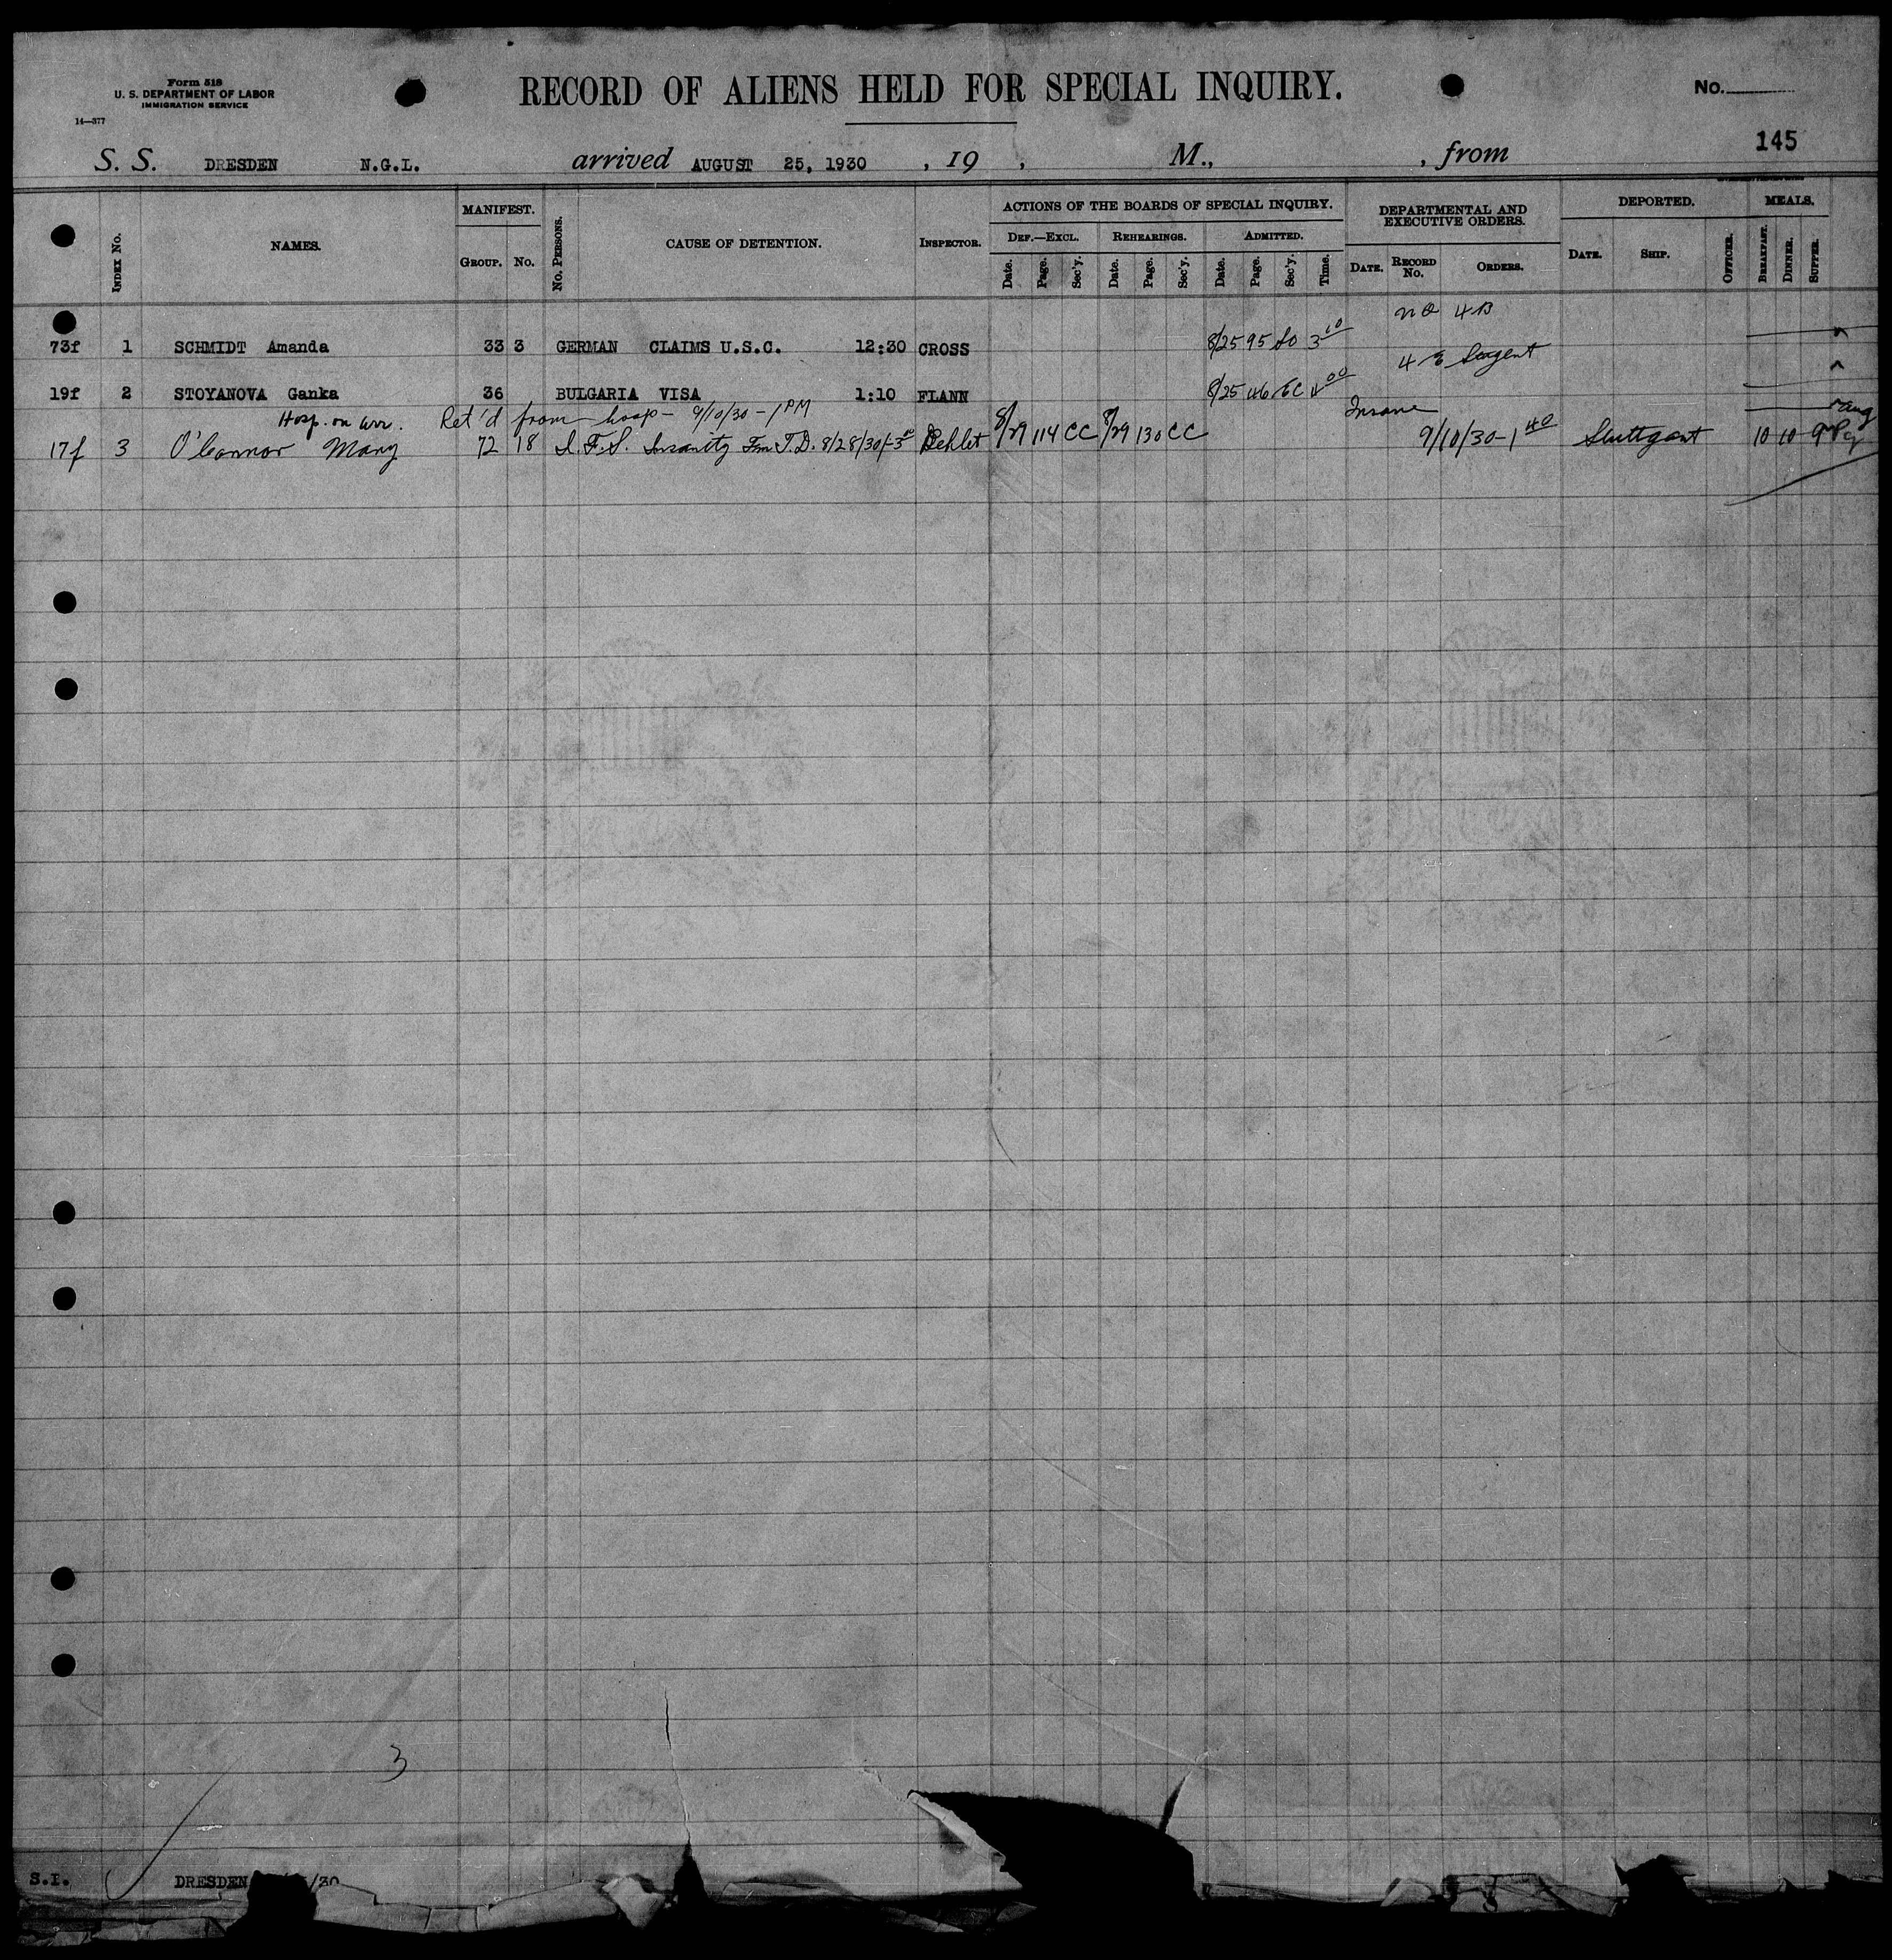 Form 518
U. S. DEPARTMENT OF LABOR
IMMIGRATION SERVICE
14—377
RECORD OF ALIENS HELD FOR SPECIAL INQUIRY.
No.
145
S. S. DRESDEN N.G.L. arrived AUGUST 25, 1930 , 19 , M., , from
INDEX No. NAMES. MANIFEST. GROUP. No. No. PERSONS. CAUSE OF DETENTION. INSPECTOR. ACTIONS OF THE BOARDS OF SPECIAL INQUIRY. DEF.—EXCL. Date. Page. Sec'y. REHEARINGS. Date. Page. Sec'y. ADMITTED. Date. Page. Sec'y. Time. DEPARTMENTAL AND EXECUTIVE ORDERS. DATE. RECORD No. ORDERS. DEPORTED. DATE. SHIP. OFFICER. MEALS. BREAKFAST. DINNER. SUPPER.
4B
73f 1 SCHMIDT Amanda 33 3 GERMAN CLAIMS U.S.C. 12:30 CROSS 8/25 95 So 3 10
4 E Sargent
19f 2 STOYANOVA Ganka 36 BULGARIA VISA 1:10 FLANN 8/25 46 EC 4 00
Hosp. on arr. Ret'd from hosp- 9/10/30 - 1 PM Insane
17f 3 O'Connor Mary 72 18 I.F.S. Insanity Fm T.D. 8/28/30-3 8/29 114 CC 8/29 130 CC 9/10/30-1 40 Stuttgart 10 10 9
3
S.I. DRESDEN /30